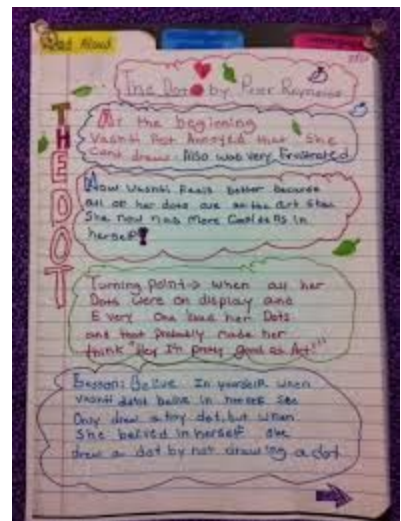 Read Aloud
The Dot by Peter Reynolds
THE DOT
At the beginning
Vashti Felt Annoyed that She
Cant draw. Also was very Frustrated
Now Vashti Feels better because
all of her dots are at the Art Show
She now has More Confidens in
herself!
Turning point → When all her
Dots were on display and
Every One loved her Dots
and that probably made her
think "Hey I'm pretty good at Art!"
Lesson: Belive In yourself when
Vashti didnt belive in herself She
Only drew a tiny dot, but when
She belived in herself she
drew a dot by not drawing a dot